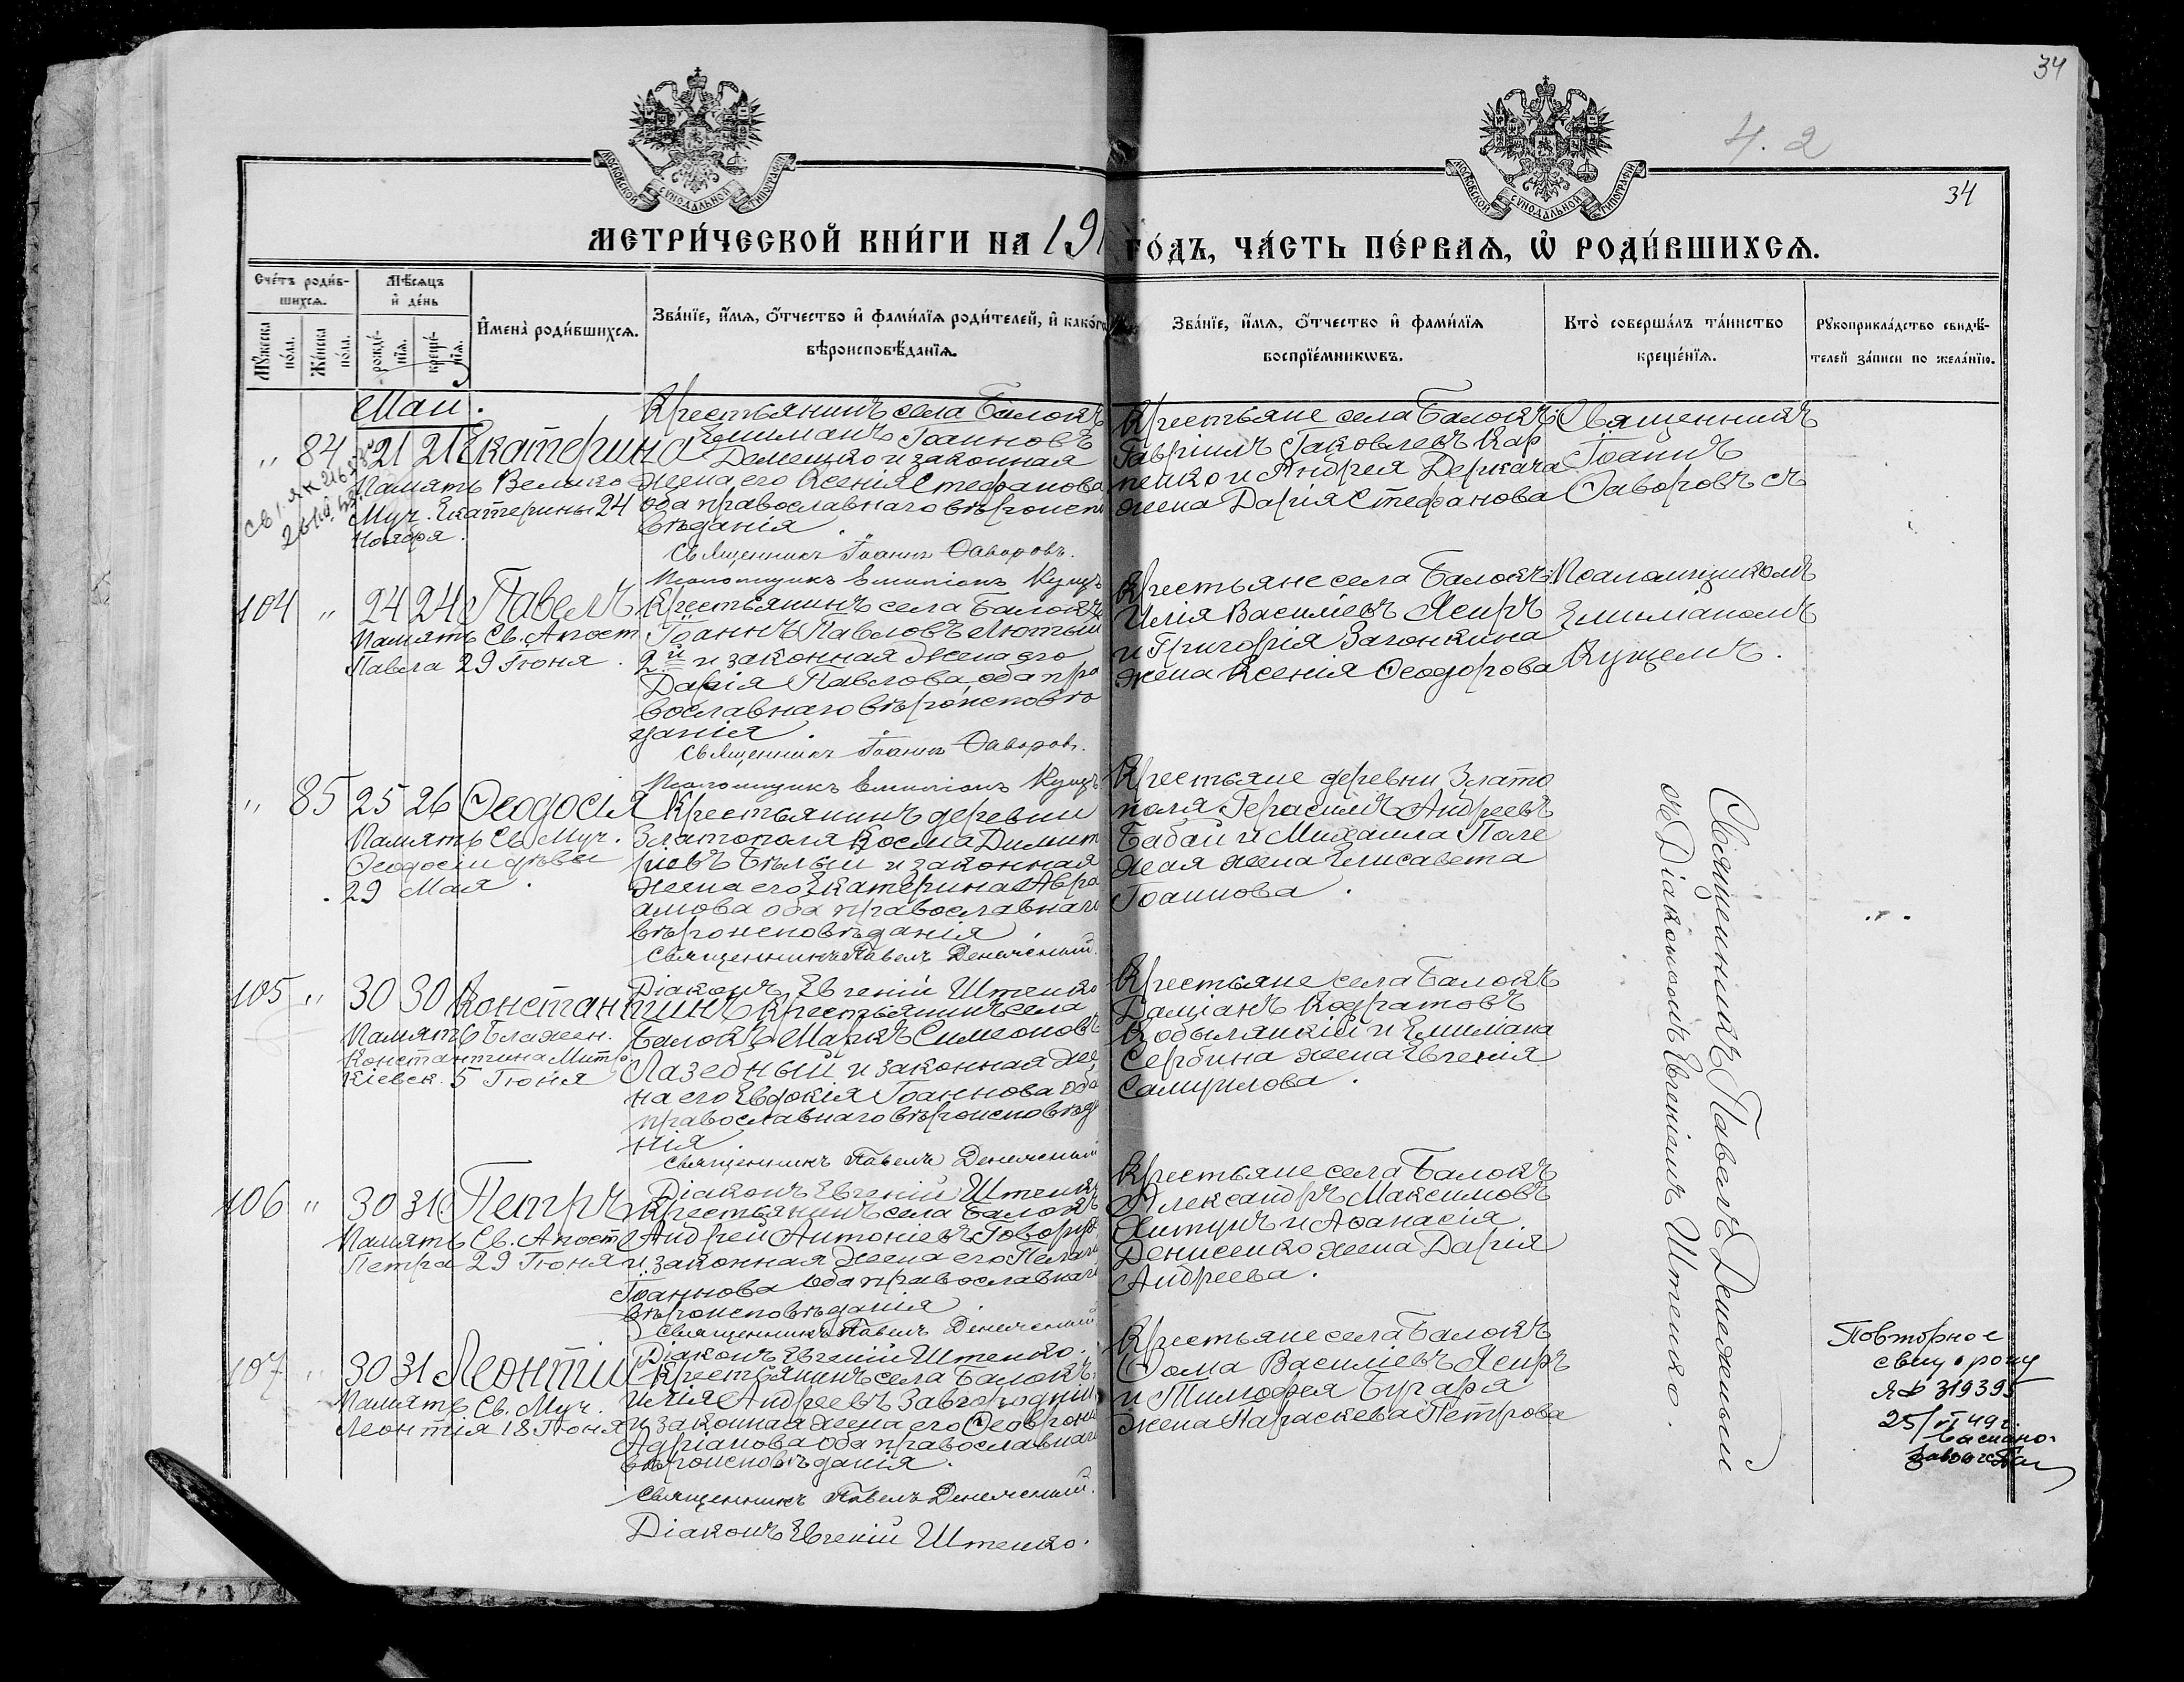 34
Ч. 2
34
МОСКОВСКОЙ СУНОДАЛЬНОЙ ТИПОГРАФІИ
МОСКОВСКОЙ СУНОДАЛЬНОЙ ТИПОГРАФІИ
МЕТРИ́ЧЕСКОЙ КНИ́ГИ НА 191 ГО́ДЪ, ЧА́СТЬ ПЕ́РВАѦ, Ѡ҆ РОДИ́ВШИХСѦ.
Сче́тъ роди́в-
шихсѧ.
Мꙋ́жеска
по́ла.
Же́нска
по́ла.
Мѣ́сѧцъ
и҆ де́нь
рожде́-
нїѧ.
креще́-
нїѧ.
И҆мена̀ роди́вшихсѧ.
Зва́нїе, и҆́мѧ, ѻ҆́тчество и҆ фами́лїѧ роди́телей, и҆ како́гѡ
вѣроисповѣ́данїѧ.
Зва́нїе, и҆́мѧ, ѻ҆́тчество и҆ фами́лїѧ
воспрїе́мникѡвъ.
Кто̀ соверша́лъ та́инство
креще́нїѧ.
Рꙋкоприкла́дство свидѣ́-
телей за́писи по жела́нїю.
Май.
„ 84 21 21 Екатерина
Память Велико
Муч. Екатерины 24
Ноября.
Крестьянинъ села Балокъ
Емиліанъ Іоанновъ
Демешко и законная
жена его Ксенія Стефанова
оба православнаго вѣроиспо
вѣданія.
Священникъ Іоаннъ Ѳаворовъ.
Псаломщикъ Емиліанъ Кущъ
Крестьяне села Балокъ:
Гавріилъ Іаковлевъ Кар
пенко и Андрея Деркача
жена Дарія Стефанова
Священникъ
Іоаннъ
Ѳаворовъ съ
104 „ 24 24 Павелъ
Память Св. Апост
Павла 29 Іюня.
Крестьянинъ села Балокъ
Іоаннъ Павловъ Лютый
2й и законная жена его
Дарія Павлова, оба пра
вославнаго вѣроисповѣ
данія.
Священникъ Іоаннъ Ѳаворовъ.
Псаломщикъ Емиліанъ Кущъ
Крестьяне села Балокъ:
Илія Василіевъ Ясиръ
и Григорія Загонкина
жена Ксенія Ѳеодорова
Псаломщикомъ
Емиліаномъ
Кущемъ.
„ 85 25 26 Ѳеодосія
Память Св. Муч.
Ѳеодосіи дѣвы
29 Мая.
Крестьянинъ деревни
Златополя Косма Димит
ріевъ Бѣлый и законная
жена его Екатерина Авра
амова оба православнаго
вѣроисповѣданія
Священникъ Павелъ Денежный.
Діаконъ Евгеній Штенко
Крестьяне деревни Злато
поля Герасимъ Андреевъ
Бабай и Михаила Поле
жая жена Елисавета
Іоаннова.
Священникъ Павелъ Денежный
съ Діакономъ Евгеніемъ Штенко.
105 „ 30 30 Константинъ
Память Блажен.
Константина Митр.
Кіевск. 5 Іюня
Крестьянинъ села
Балокъ Маркъ Симеоновъ
Лазебный и законная же
на его Евдокія Іоаннова оба
православнаго вѣроисповѣда
нія.
Священникъ Павелъ Денежный
Діаконъ Евгеній Штенко
Крестьяне села Балокъ
Даміанъ Кодратовъ
Кобыляцкій и Емиліана
Сербина жена Евгенія
Самуилова.
106 „ 30 31 Петръ
Память Св. Апост
Петра 29 Іюня
Крестьянинъ села Балокъ
Андрей Антоніевъ
и законная жена его Пелагія
Іоаннова оба православнаго
вѣроисповѣданія.
Священникъ Павелъ Денежный
Діаконъ Евгеній Штенко.
Крестьяне села Балокъ
Александръ Максимовъ
и Аѳанасія
Денисенко жена Дарія
Андреева.
107 „ 30 31 Леонтій
Память Св. Муч.
Леонтія 18 Іюня
Крестьянинъ села Балокъ
Илія Андреевъ Завгородній
и законная жена его Ѳеврон
Адріанова оба православнаго
вѣроисповѣданія.
Священникъ Павелъ Денежный.
Діаконъ Евгеній Штенко.
Крестьяне села Балокъ
Ѳома Василіевъ Ясиръ
и Тимоѳея Бугаря
жена Параскева Петрова
Повторное
свид о рожд
ЯФ 319395
25/VI 49 г.